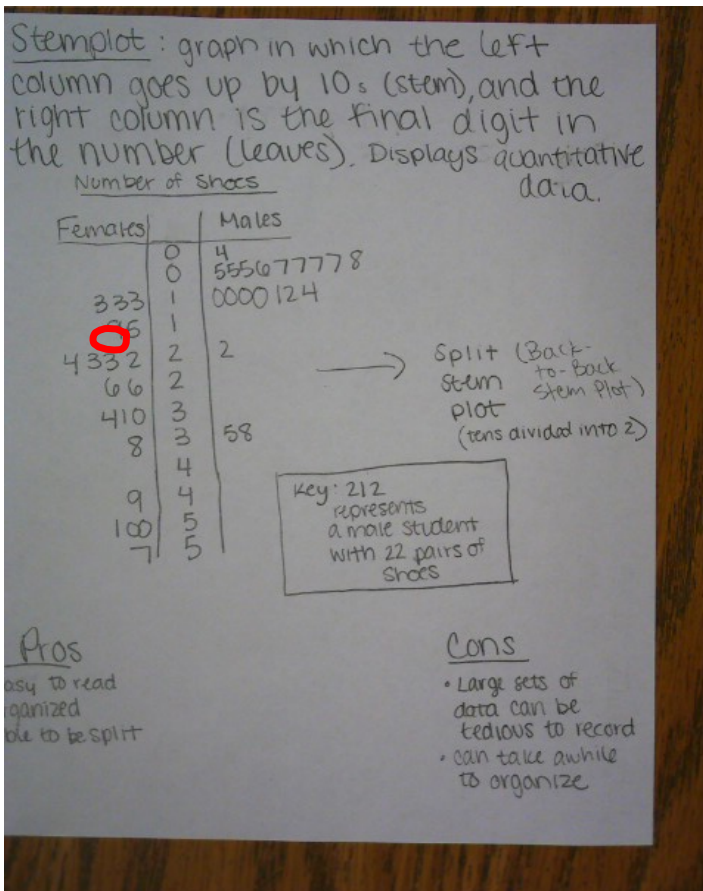 Stemplot : graph in which the left
column goes up by 10s (stem), and the
right column is the final digit in
the number (leaves). Displays quantitative
data.
Number of Shoes
Females Males
0 4
0 555677778
333 1 0000124
95 1
4332 2 2
66 2
410 3
8 3 58
4
9 4
100 5
7 5
Split (Back-
stem to-Back
plot Stem Plot)
(tens divided into 2)
Key: 212
represents
a male student
with 22 pairs of
shoes
Pros
asy to read
ganized
ble to be split
Cons
• Large sets of
data can be
tedious to record
• can take awhile
to organize